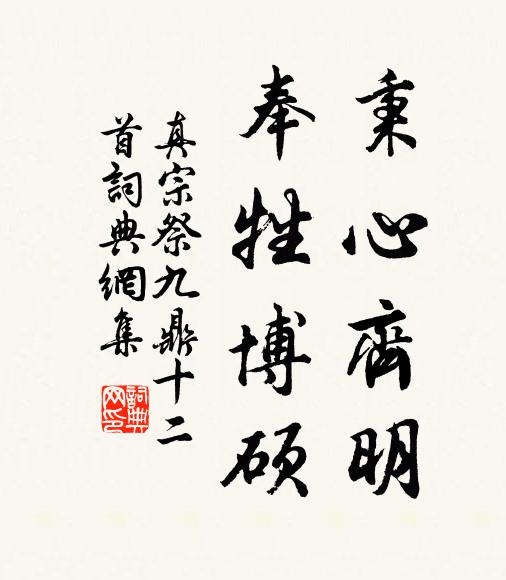 秉心齊明
奉牲博硕
真宗祭九鼎十二
首詞典網集
詞典网印